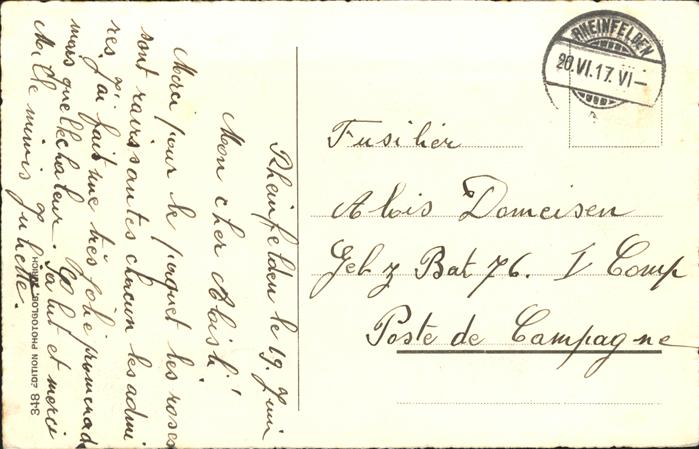 RHEINFELDEN
20.VI.17.VI—
Rheinfelden le 19 Juin
Mon cher Aloisli!
Merci pour le paquet les roses
sont ravissantes chacun les admi
res. j'ai fait une très jolie promenad
mais quelle chaleur. Salut et merci
Mille mimis Juliette.
Fusilier
Alois Domeisen
Geb z Bat 76. I Comp
Poste de Campagne
348 EDITION PHOTOGLOB, ZÜRICH